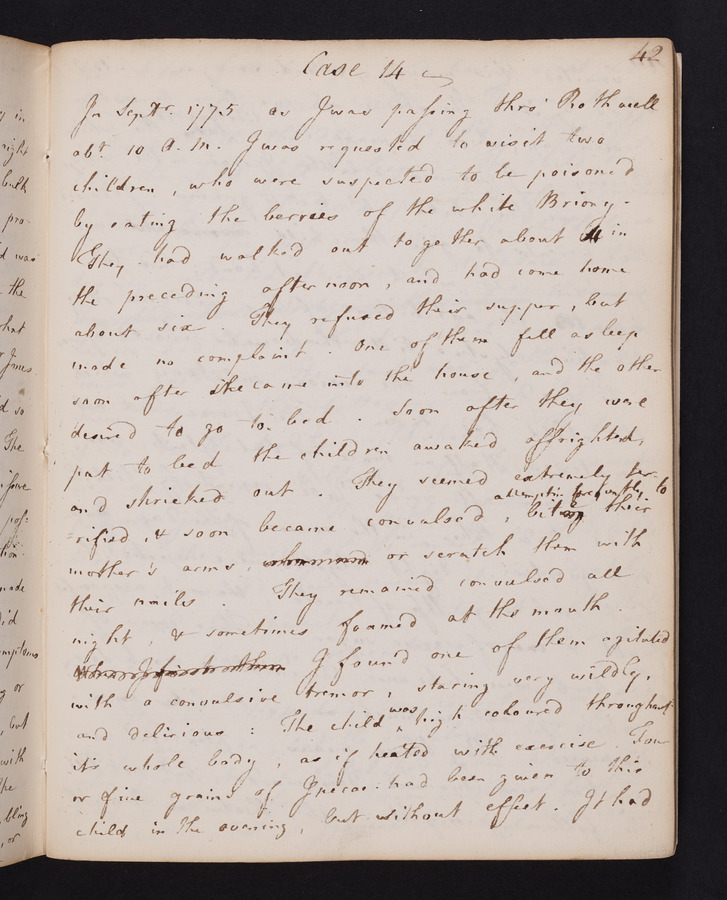 42
Case 14
In Septr. 1775 as I was passing thro' Rothwell
abt. 10 A. M. I was requested to visit two
children, who were suspected to be poison'd
by eating the berries of the white Briony.
They had walked out together about 4 in
the preceding afternoon, and had come home
about six. They refused their supper, but
made no complaint. One of them fell asleep
soon after she came into the house, and the other
desired to go to bed. Soon after they were
put to bed the children awaked affrighted,
and shrieked out. They seemed extremely ter-
rified, & soon became convulsed, attempting frequently to bite their
mother's arms, or scratch them with
their nails. They remained convulsed all
night, & sometimes foamed at the mouth.
I found one of them agitated
with a convulsive tremor, staring very wildly,
and delirious: The child was high coloured throughout
it's whole body, as if heated with exercise. Four
or five grains of Ipecac. had been given to this
child in the evening, but without effect. It had